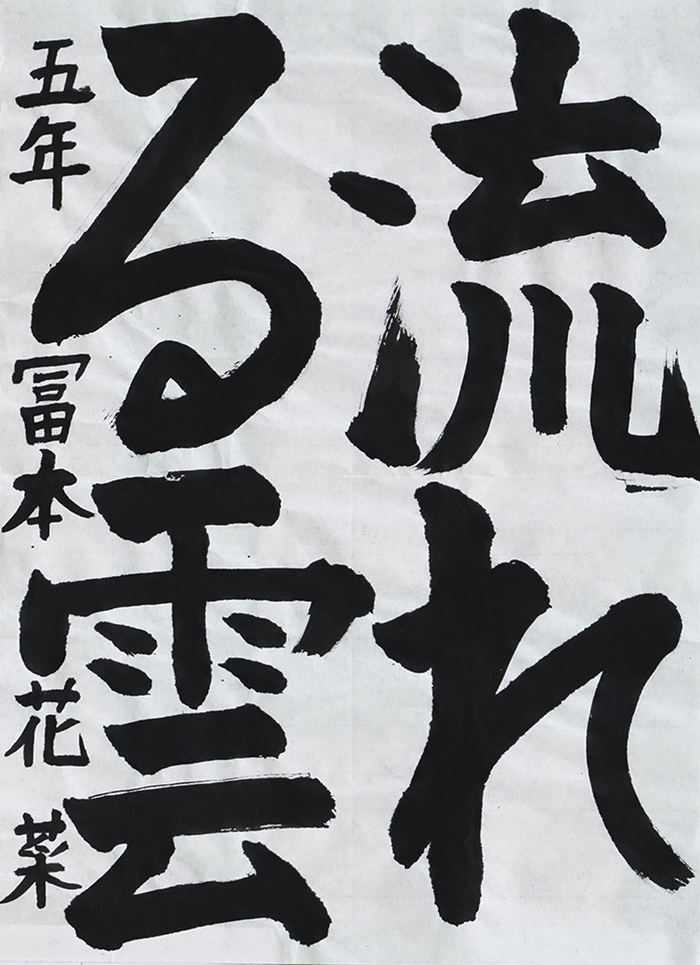 流れ
る雲
五年 冨本花菜